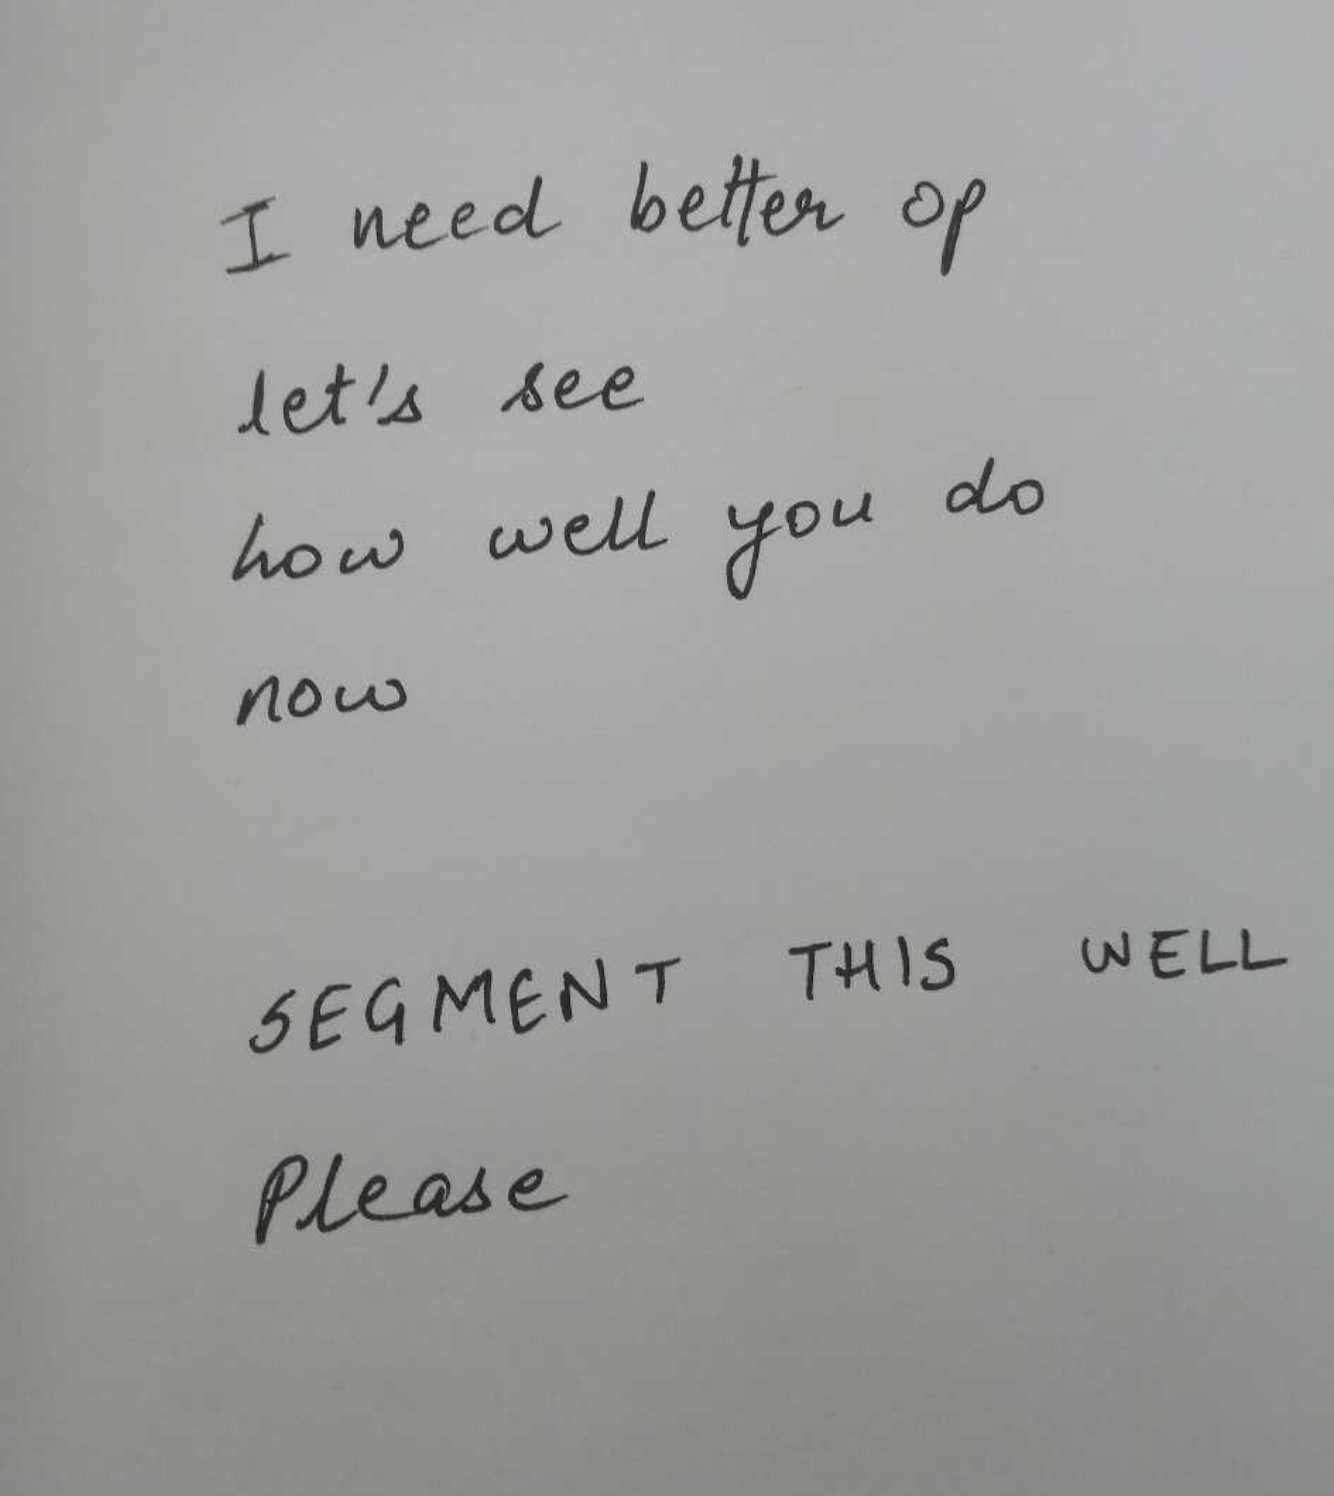 I need better op
let's see
how well you do
now
SEGMENT THIS WELL
Please